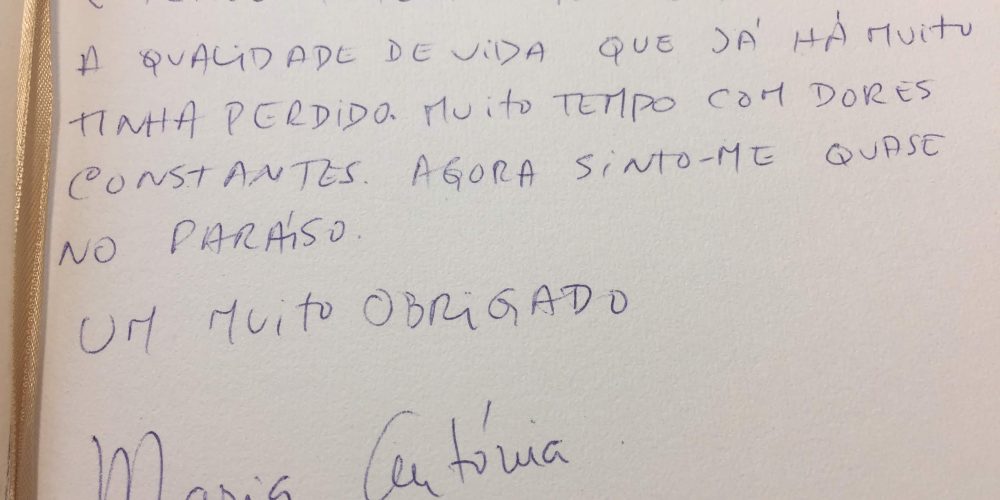 A QUALIDADE DE VIDA QUE JÁ HÁ MUITO
TINHA PERDIDO. MUITO TEMPO COM DORES
CONSTANTES. AGORA SINTO-ME QUASE
NO PARAÍSO.
UM MUITO OBRIGADO
Maria António